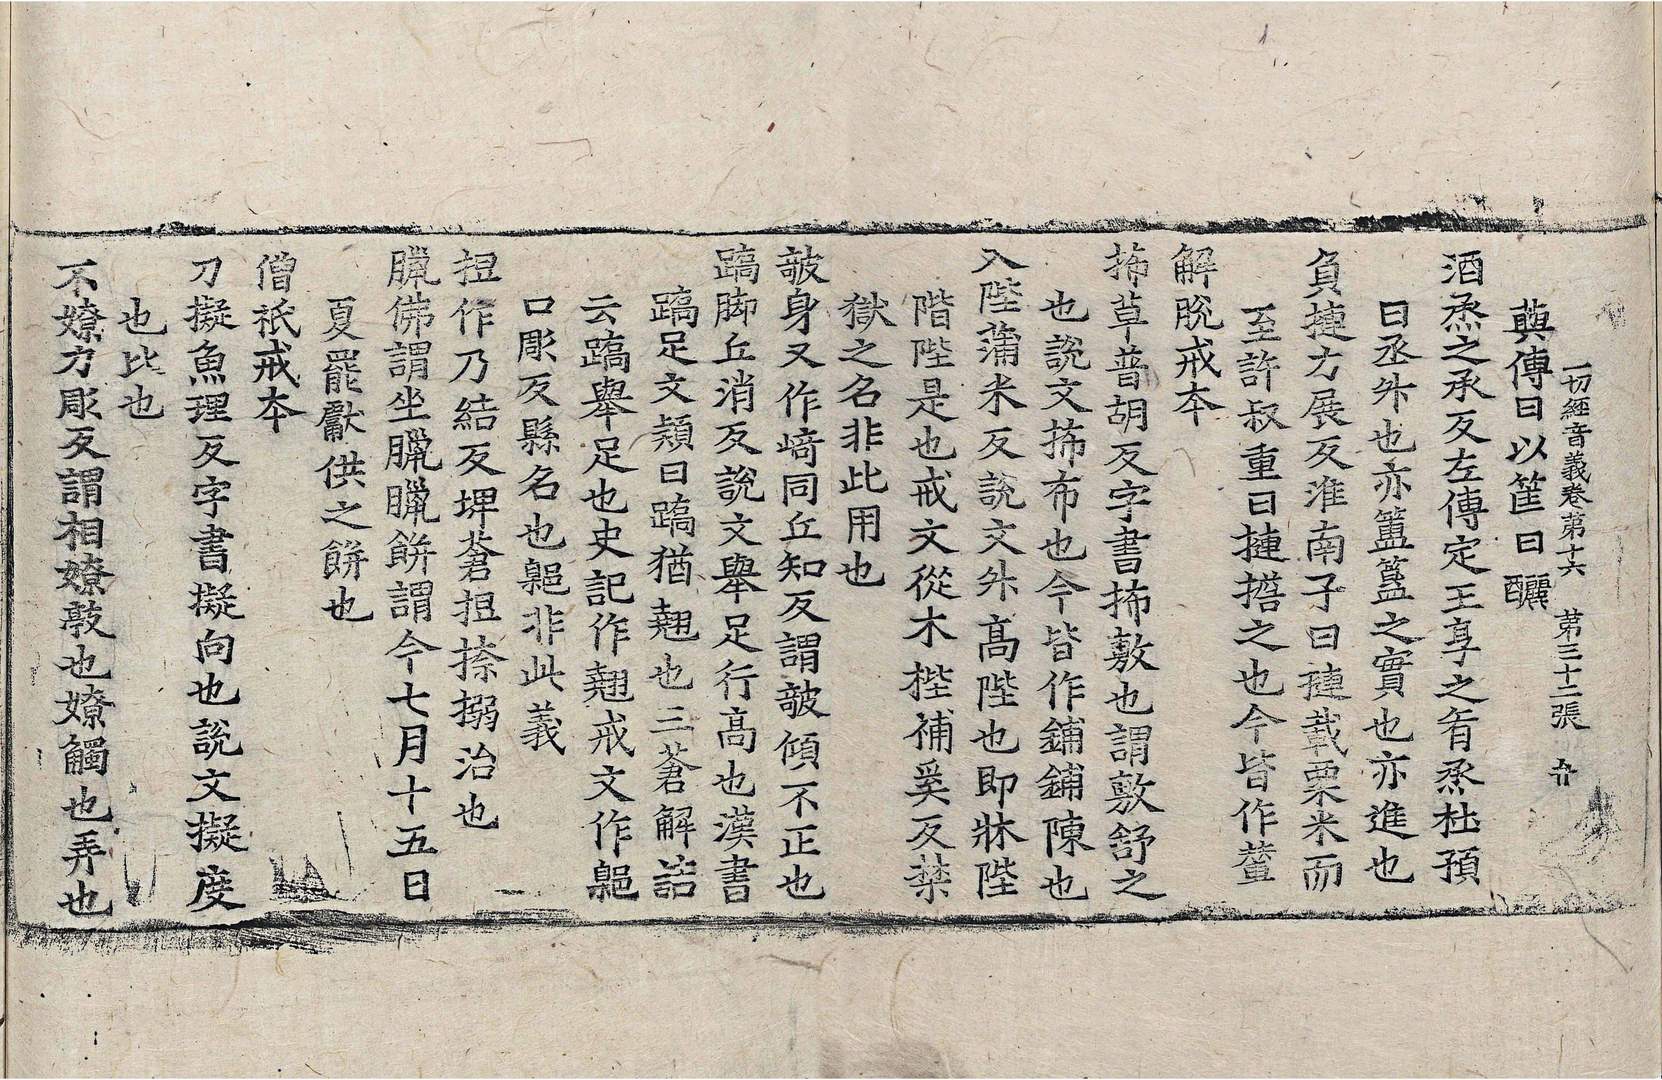 一切經音義卷第十六　第三十二張
藇傳曰以筐曰釃
酒烝之承反左傳定王享之肴烝杜預
曰丞外也亦簠簋之實也亦進也
負摙力展反淮南子曰摙載粟米而
至許叔重曰摙擔之也今皆作輦
解脫戒本
抪草普胡反字書抪敷也謂敷舒之
也說文抪布也今皆作鋪鋪陳也
入陛蒲米反說文外高陛也即牀陛
階陛是也戒文從木梐補奚反禁
獄之名非此用也
㩻身又作崎同丘知反謂㩻傾不正也
蹻脚丘消反說文舉足行高也漢書
蹻足文穎曰蹻猶翹也三蒼解詁
云蹻舉足也史記作翹戒文作鄡
口彫反縣名也鄡非此義
担作乃結反埤蒼担捺搦治也
臘佛謂坐臘臘餅謂今七月十五日
夏罷獻供之餅也
僧祇戒本
刀擬魚理反字書擬向也說文擬度
也比也
不嫽力彫反謂相嫽戲也嫽觸也弄也